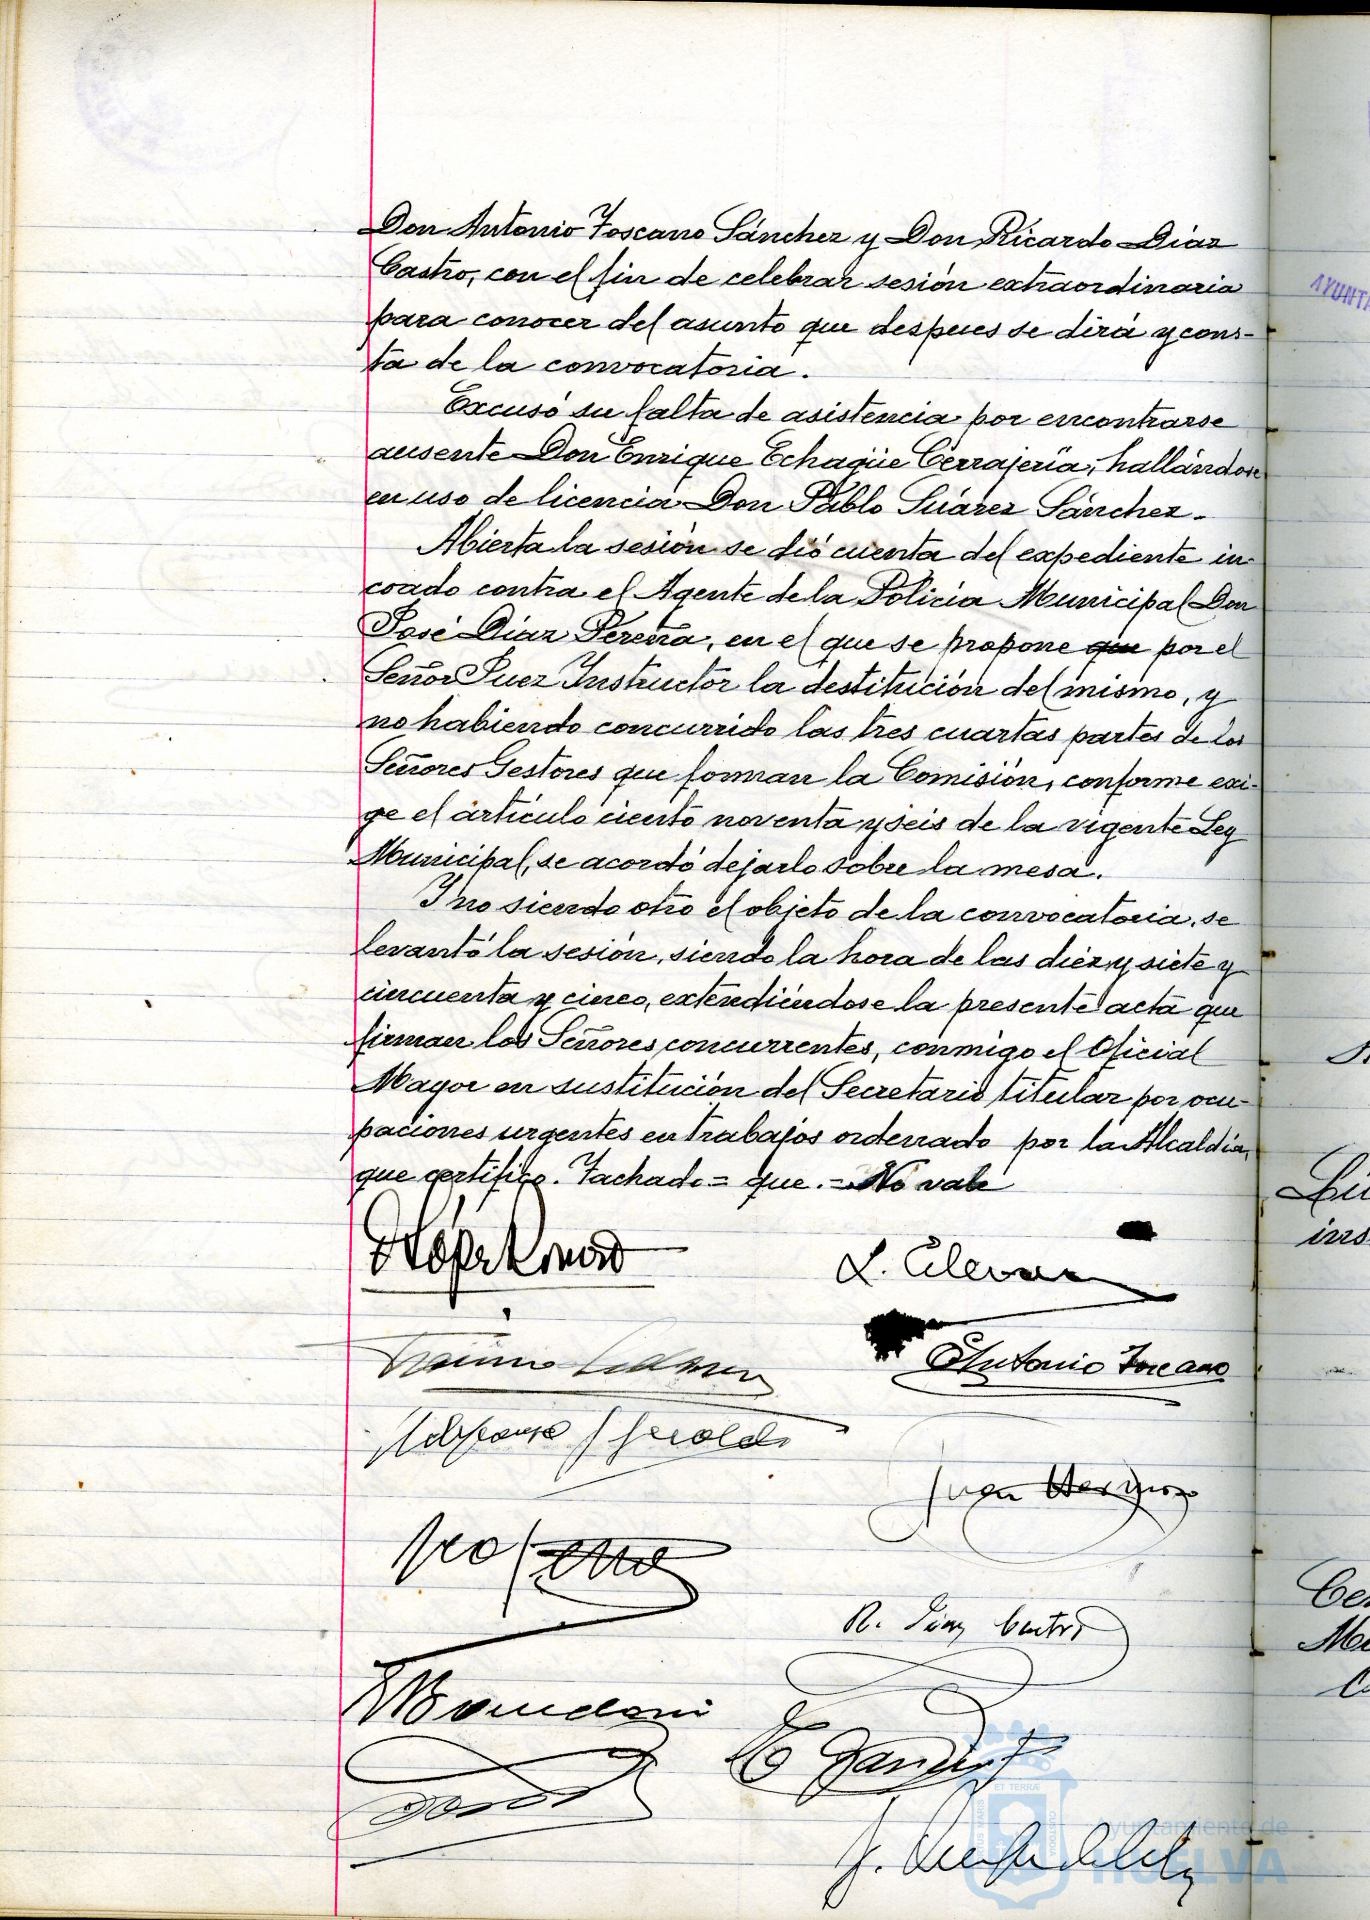 Don Antonio Toscano Sánchez y Don Ricardo Díaz
Castro, con el fin de celebrar sesión extraordinaria
para conocer del asunto que despues se dirá y cons-
ta de la convocatoria.
Excusó su falta de asistencia por encontrarse
ausente Don Enrique Echagüe Cerrajería, hallándose
en uso de licencia Don Pablo Suárez Sánchez.
Abierta la sesión se dió cuenta del expediente in-
coado contra el Agente de la Policía Municipal Don
José Díaz Pereña, en el que se propone que por el
Señor Juez Instructor la destitución del mismo, y
no habiendo concurrido las tres cuartas partes de los
Señores Gestores que forman la Comisión, conforme exi-
ge el artículo ciento noventa y seis de la vigente Ley
Municipal, se acordó dejarlo sobre la mesa.
Y no siendo otro el objeto de la convocatoria, se
levantó la sesión, siendo la hora de las diez y siete y
cincuenta y cinco, extendiéndose la presente acta que
firman los Señores concurrentes, conmigo el Oficial
Mayor en sustitución del Secretario titular por ocu-
paciones urgentes en trabajos ordenado por la Alcaldía,
que certifico. Tachado = que. = No vale
Antonio Toscano
Juan Hermoso
R. Díaz Castro
ayuntamiento de
HUELVA
AYUNTA